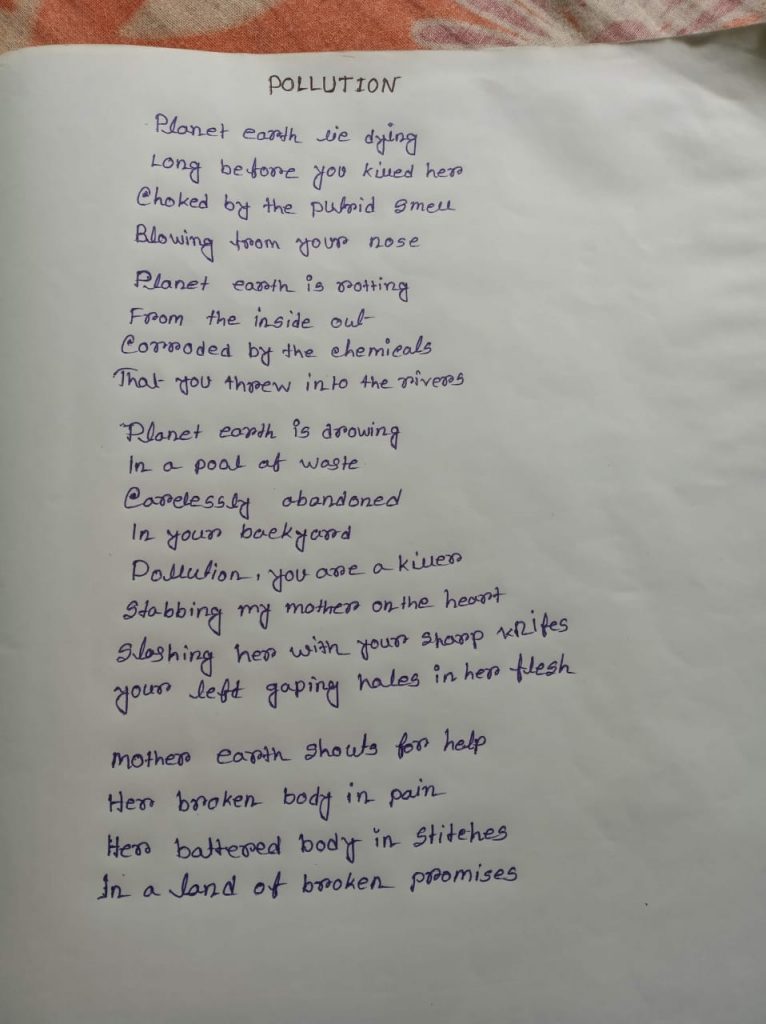 POLLUTION
Planet earth lie dying
Long before you killed her
Choked by the putrid smell
Blowing from your nose
Planet earth is rotting
From the inside out
Corroded by the chemicals
That you threw into the rivers
Planet earth is drowing
In a poal of waste
Carelessly abandoned
In your backyard
Pollution, you are a killer
Stabbing my mother on the heart
Slashing her with your sharp knifes
your left gaping holes in her flesh
mother earth shouts for help
Her broken body in pain
Her battered body in stitches
In a land of broken promises